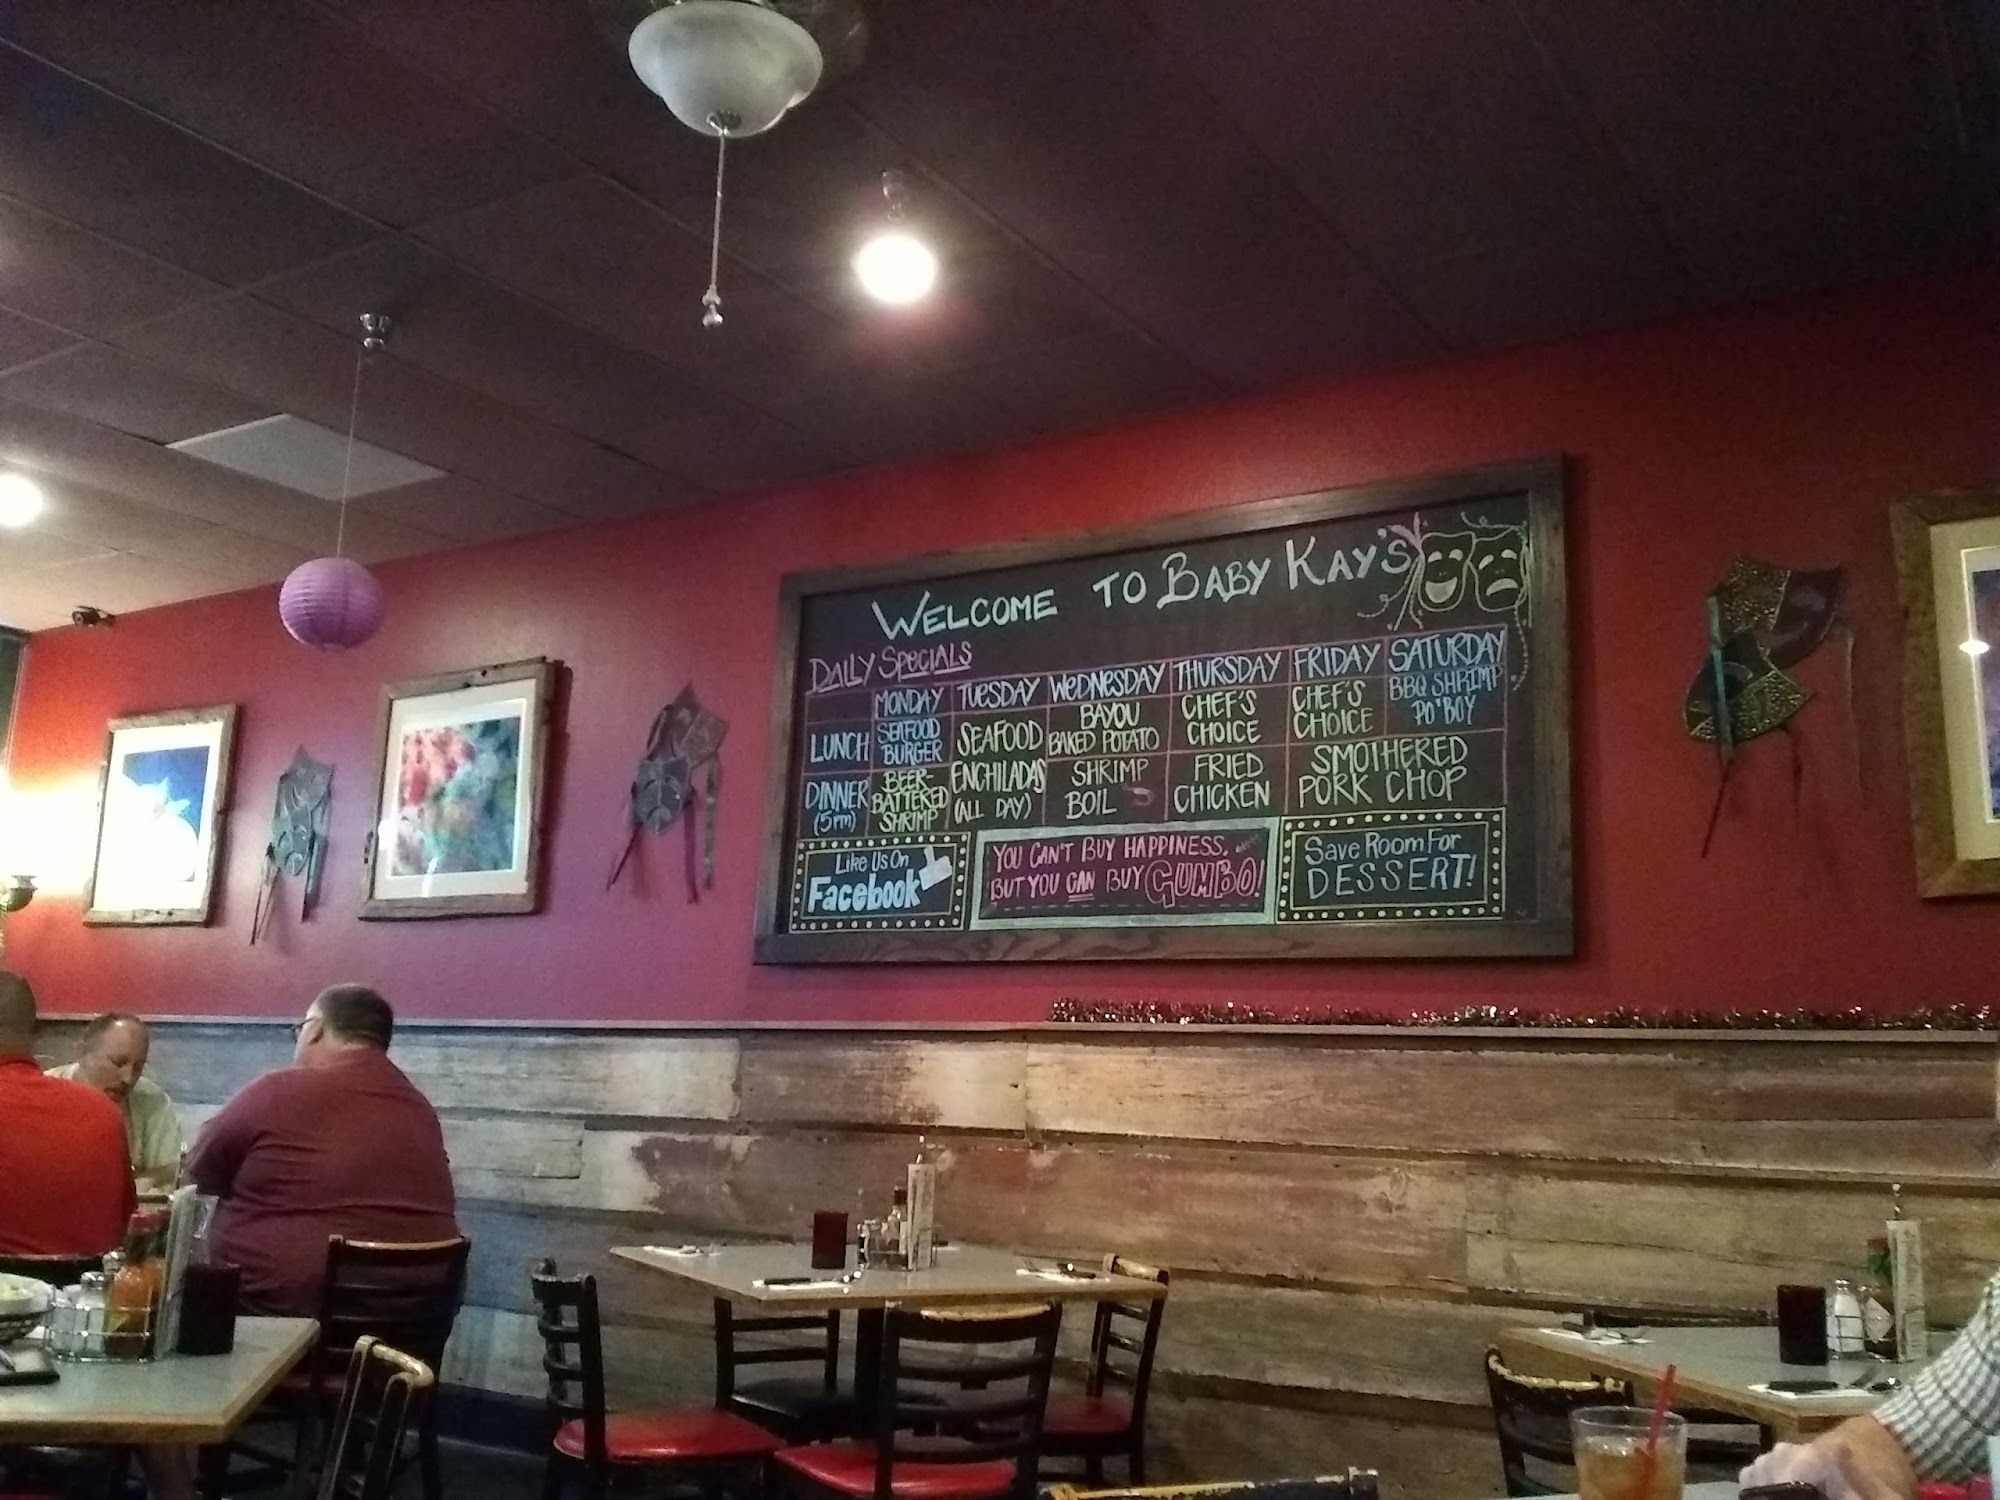 WELCOME TO BABY KAY'S
DAILY SPECIALS
MONDAY TUESDAY WEDNESDAY THURSDAY FRIDAY SATURDAY
LUNCH
SEAFOOD
BURGER
SEAFOOD
ENCHILADAS
(ALL DAY)
BAYOU
BAKED POTATO
CHEF'S
CHOICE
CHEF'S
CHOICE
BBQ SHRIMP
PO'BOY
DINNER
(5PM)
BEER-
BATTERED
SHRIMP
SHRIMP
BOIL
FRIED
CHICKEN
SMOTHERED
PORK CHOP
Like Us On
Facebook
YOU CAN'T BUY HAPPINESS,
BUT YOU CAN BUY GUMBO!
Save Room For
DESSERT!